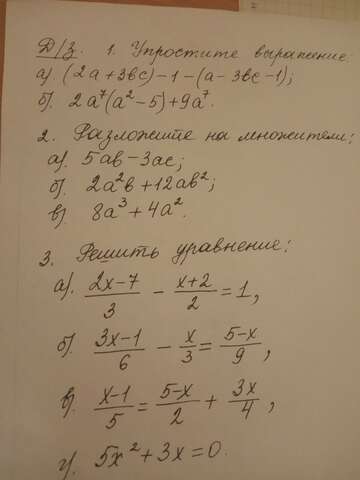 Д/З. 1. Упростите выражение:
а) (2a+3bc)-1-(a-3bc-1);
б). 2a⁷(a²-5)+9a⁷.
2. Разложите на множители:
а). 5ab-3ac;
б). 2a²b+12ab²;
в). 8a³+4a².
3. Решить уравнение:
а). (2x-7)/3 - (x+2)/2 = 1,
б). (3x-1)/6 - x/3 = (5-x)/9,
в). (x-1)/5 = (5-x)/2 + 3x/4,
г). 5x²+3x=0.